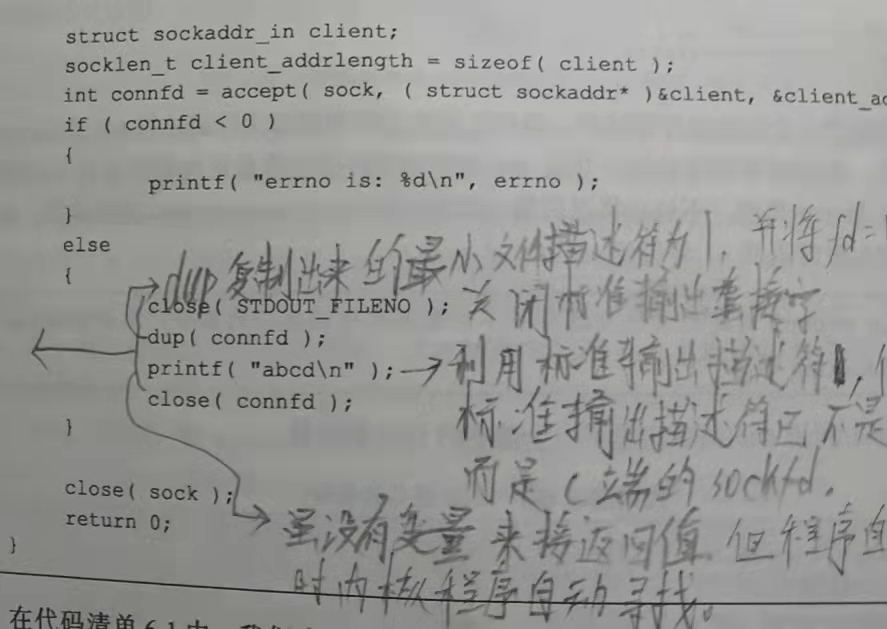 struct sockaddr_in client;
socklen_t client_addrlength = sizeof( client );
int connfd = accept( sock, ( struct sockaddr* )&client, &client_ad
if ( connfd < 0 )
{
printf( "errno is: %d\n", errno );
}
else
{
dup复制出来的最小文件描述符为1，并将fd=
close( STDOUT_FILENO ); 关闭标准输出套接字
dup( connfd );
printf( "abcd\n" ); → 利用标准输出描述符1，
close( connfd );
标准输出描述符已不是
}
而是C端的sockfd.
close( sock );
return 0;
虽没有变量来接返回值，但程序自
}
时内核程序自动寻找。
在代码清单6-1中，我们